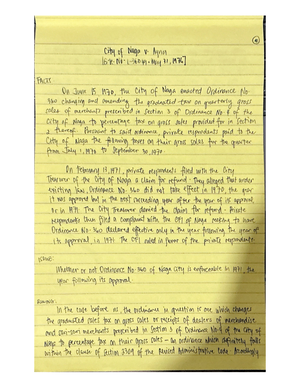 City of Naga v. Agna
[G.R. No. L-36049 - May 31, 1976]
FACTS:
On June 15, 1970, the City of Naga enacted Ordinance No.
360 changing and amending the graduated tax on quarterly gross
sales of merchants prescribed in Section 3 of Ordinance No. 4 of the
City of Naga to percentage tax on gross sales provided for in Section
2 thereof. Pursuant to said ordinance, private respondents paid to the
City of Naga the following taxes on their gross sales for the quarter
from July 1, 1970 to September 30, 1970.
On February 15, 1971, private respondents filed with the City
Treasurer of the City of Naga a claim for refund. They alleged that under
existing law, Ordinance No. 360 did not take effect in 1970, the year
it was approved but in the next succeeding year after the year of its approval,
or in 1971. The City Treasurer denied the claim for refund. Private
respondents then filed a complaint with the CFI of Naga seeking to have
Ordinance No. 360 declared effective only in the year following the year of
its approval, in 1971. The CFI ruled in favor of the private respondents.
ISSUE:
Whether or not Ordinance No. 360 of Naga City is enforceable in 1971, the
year following its approval.
In the case before us, the ordinance in question is one which changes
the graduated sales tax on gross sales or receipts of dealers of merchandise
and sari-sari merchants prescribed in Section 3 of Ordinance No. 4 of the City of
Naga to percentage tax on their gross sales - an ordinance which definitely falls
within the clause of Section 2309 of the Revised Administrative Code. Accordingly